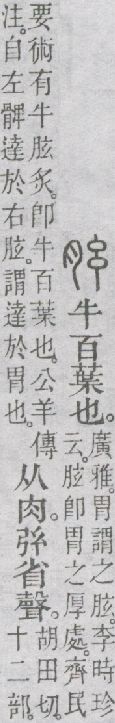 牛百葉也。廣雅。胃謂之胘。李時珍
云。胘卽胃之厚處。齊民
要術有牛胘炙。卽牛百葉也。公羊傳
注。自左髀達於右胘。謂達於胃也。
从肉。弦省聲。胡田切。
十二部。